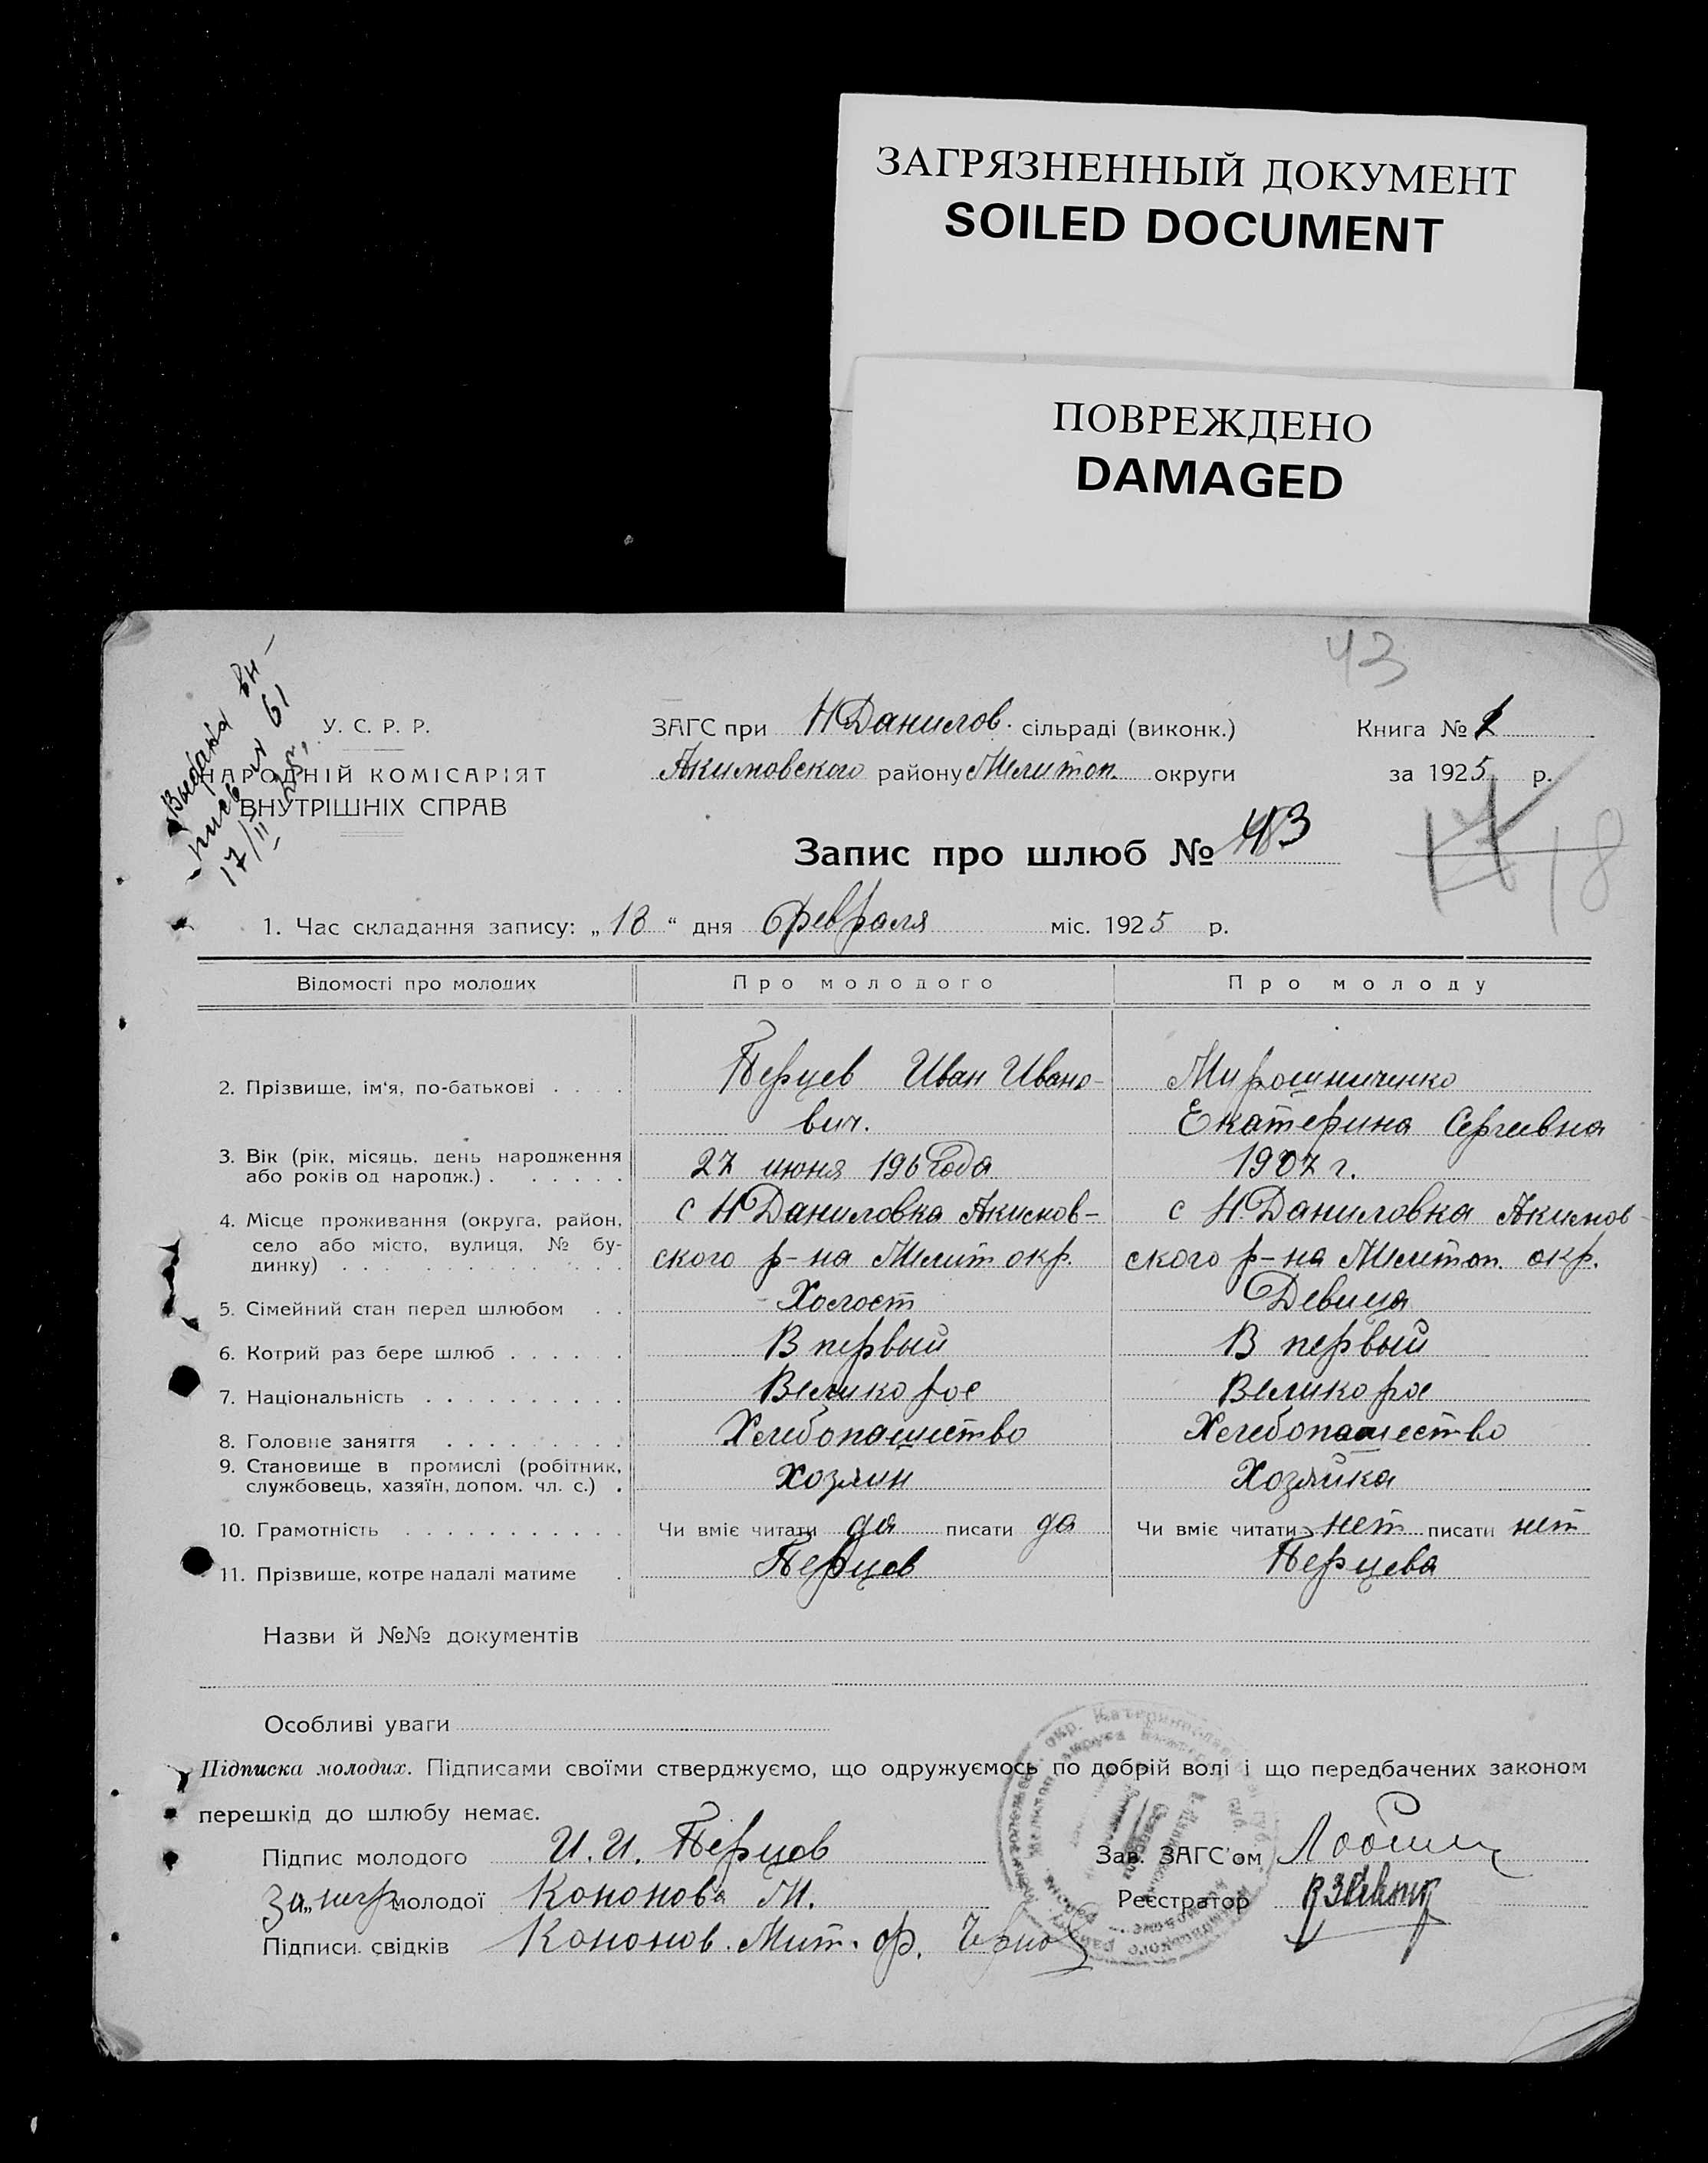 ЗАГРЯЗНЕННЫЙ ДОКУМЕНТ
SOILED DOCUMENT
ПОВРЕЖДЕНО
DAMAGED
43
Выдана вы-
пись № 61
17/II 25 г.
У. С. Р. Р.
НАРОДНІЙ КОМІСАРІЯТ
ВНУТРІШНІХ СПРАВ
ЗАГС при Н Данилов. сільраді (виконк.)
Акимовского району Мелитоп. округи
Книга №
за 1925 р.
Запис про шлюб № 43
18
1. Час складання запису: „18“ дня февраля міс. 1925 р.
Відомості про молодих Про молодого Про молоду
2. Прізвище, ім'я, по-батькові . . . . Перцев Иван Ивано- Мирошниченко
вич. Екатерина Сергеевна
3. Вік (рік, місяць, день народження
або років од народж.) . . . . . . 27 июня 196 года 1907 г.
4. Місце проживання (округа, район, с Н Даниловка Акимов- с Н. Даниловка Акимов-
село або місто, вулиця, № бу-
динку) . . . . . . . . . . . . ского р-на Мелит окр. ского р-на Мелитоп. окр.
5. Сімейний стан перед шлюбом . . Холост Девица
6. Котрий раз бере шлюб . . . . . В первый В первый
7. Національність . . . . . . . . . Великорос Великорос
8. Головне заняття . . . . . . . . Хлебопашество Хлебопашество
9. Становище в промислі (робітник,
службовець, хазяїн, допом. чл. с.) . Хозяин Хозяйка
10. Грамотність . . . . . . . . . . . Чи вміє читати да писати да Чи вміє читати нет писати нет
11. Прізвище, котре надалі матиме . Перцев Перцева
Назви й №№ документів
Особливі уваги
Підписка молодих. Підписами своїми стверджуємо, що одружуємось по добрій волі і що передбачених законом
перешкід до шлюбу немає.
Підпис молодого И. И. Перцов Зав. ЗАГС'ом
За негр молодої Кононова М. Реєстратор
Підписи свідків Кононов. Мит. ф.